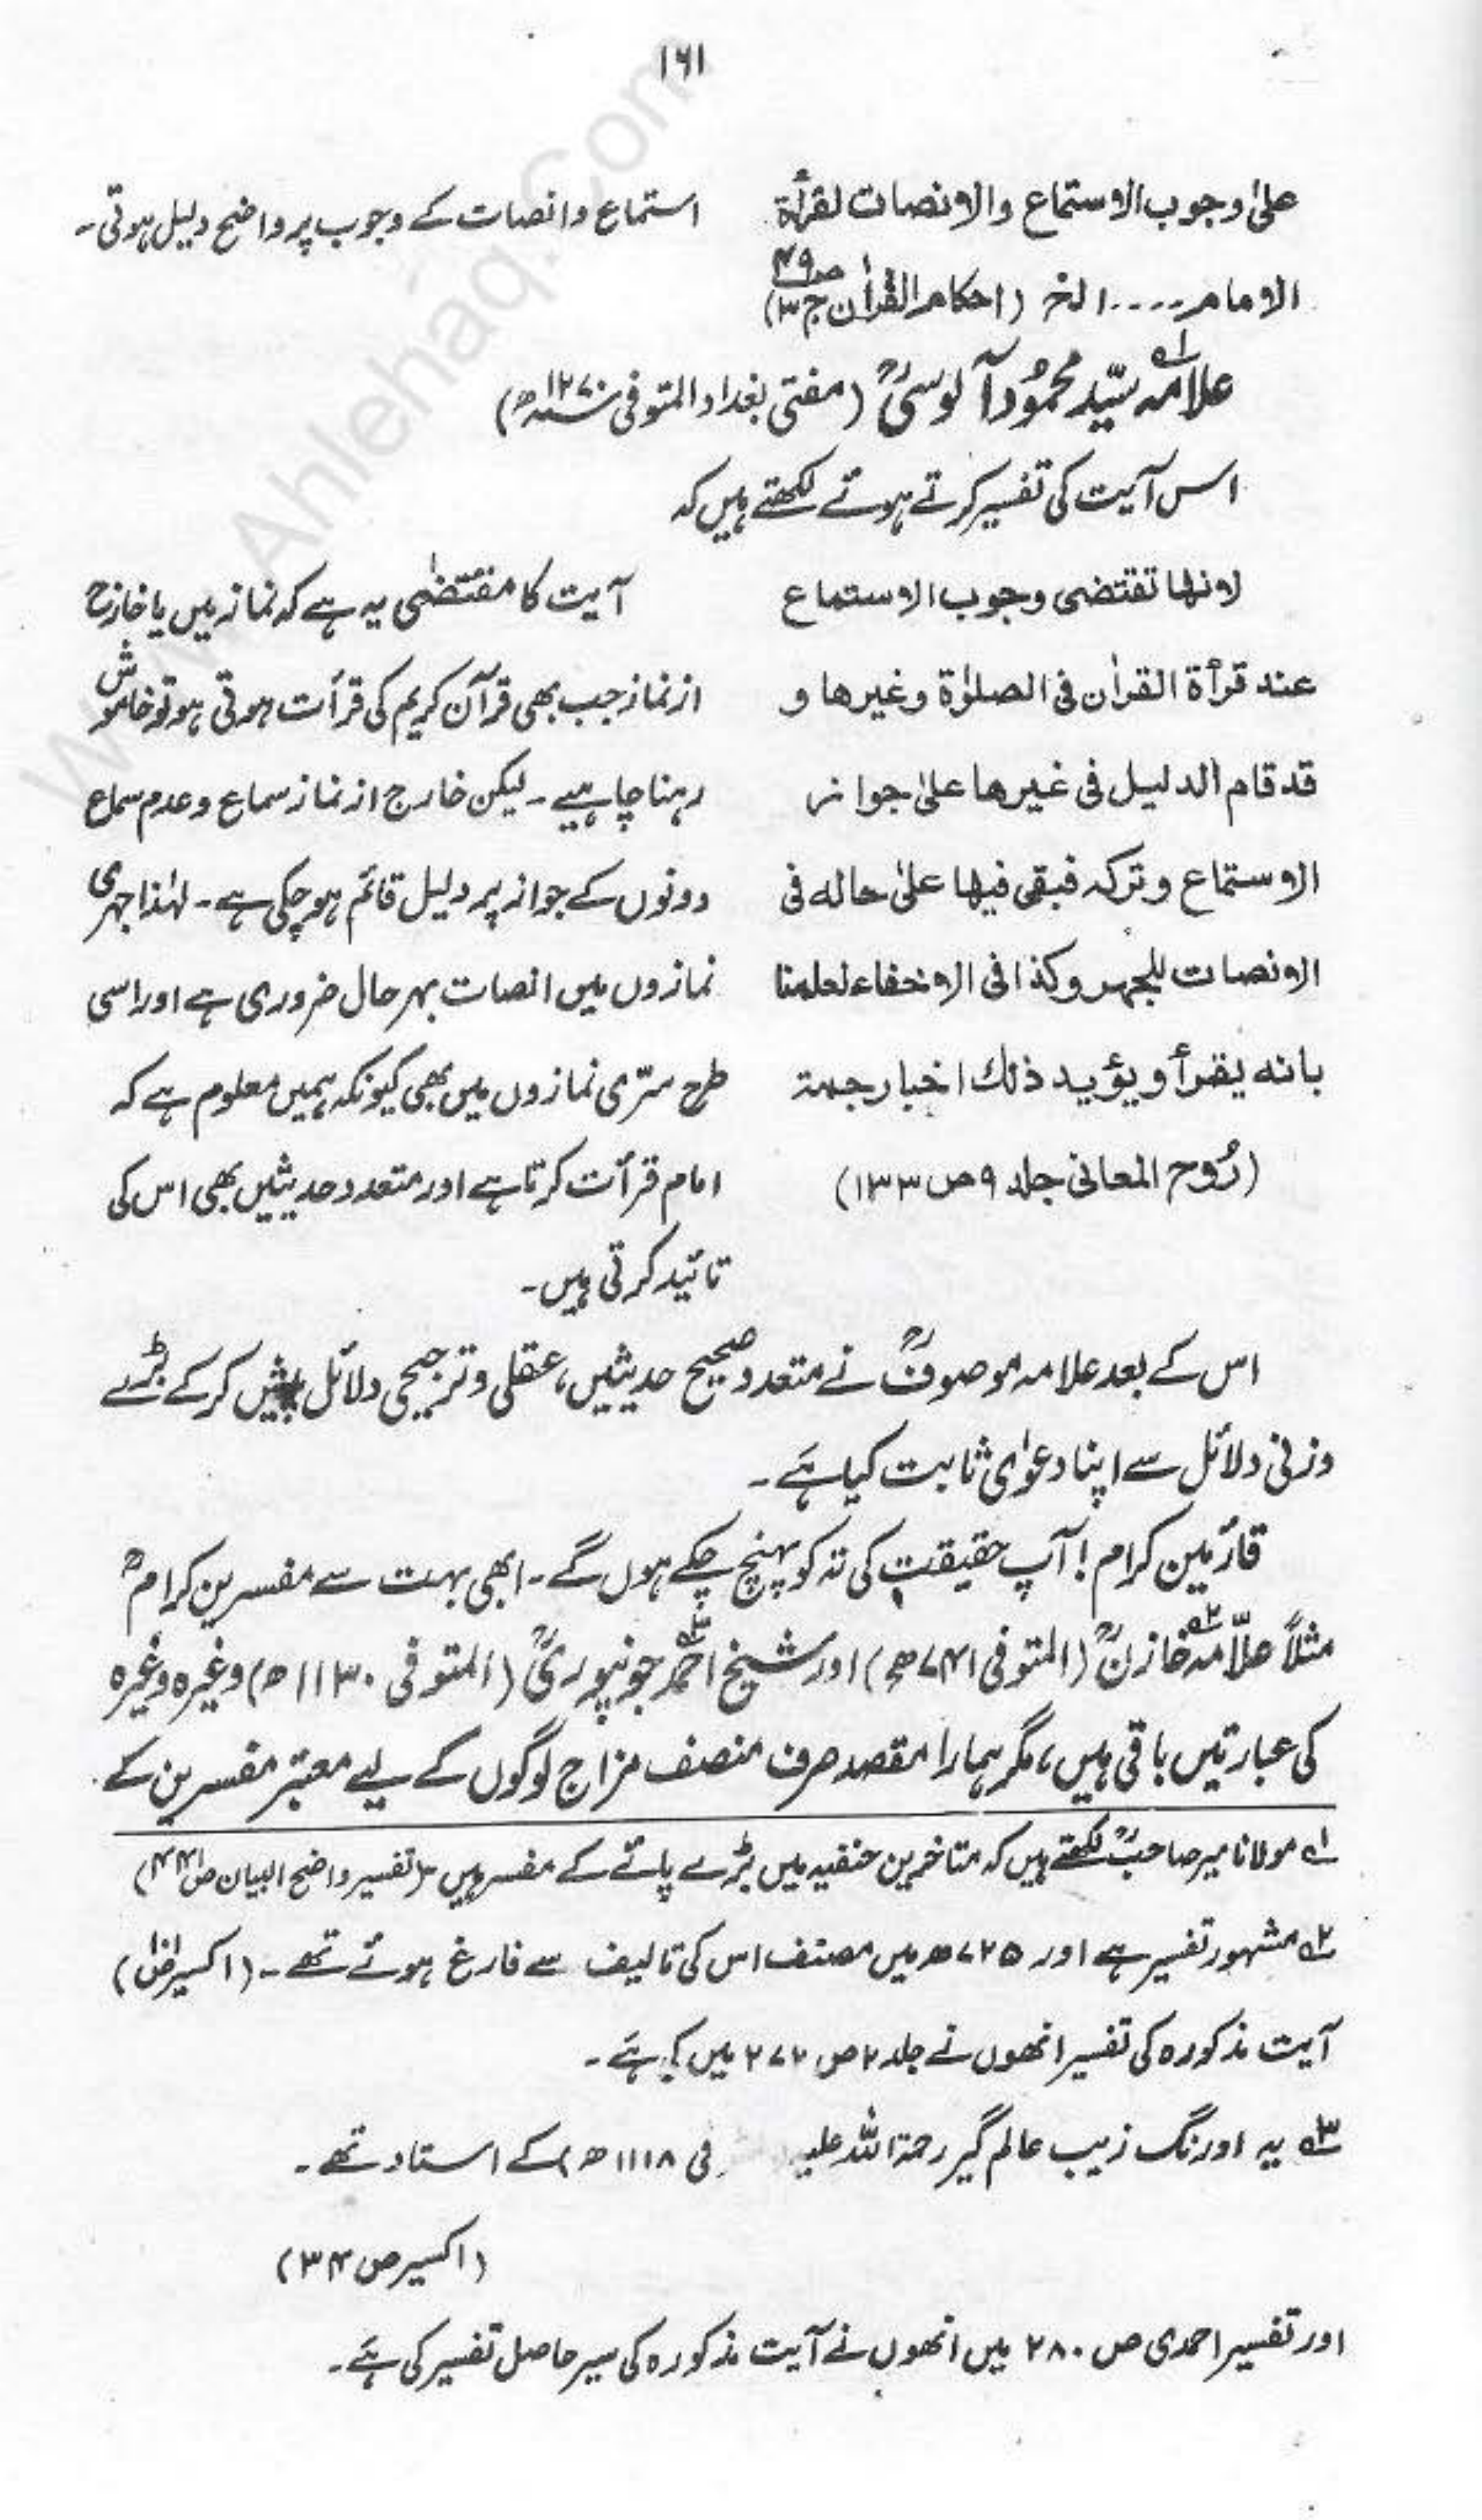 ١٦١
علىٰ وجوب الاستماع والانصات لقرأة
الامام ۔۔۔۔ الخ (احكام القراٰن ج٣ ص٤٩)
استماع و انصات کے وجوب پر واضح دلیل ہوتی۔
علامہ سیّد محمُود آلوسیؒ (مفتی بغداد المتوفی ۱۲۷۰ھ)
اس آیت کی تفسیر کرتے ہوئے لکھتے ہیں کہ
لانها تقتضى وجوب الاستماع
عند قرأة القراٰن فى الصلوٰة وغيرها و
قد قام الدليل فى غيرها علىٰ جواز
الاستماع وتركه فبقى فيها علىٰ حاله فى
الانصات للجهر وكذا فى الاخفاء لعلمنا
بانه يقرأ و يؤيد ذلك اخبار جمة
(رُوح المعانی جلد ۹ ص ۱۳۳)
آیت کا مقتضٰی یہ ہے کہ نماز میں یا خارج
از نماز جب بھی قرآن کریم کی قرأت ہوتی ہو تو خاموش
رہنا چاہیے۔ لیکن خارج از نماز سماع و عدم سماع
دونوں کے جواز پر دلیل قائم ہو چکی ہے۔ لہٰذا جہری
نمازوں میں انصات بہر حال ضروری ہے اور اسی
طرح سرّی نمازوں میں بھی کیونکہ ہمیں معلوم ہے کہ
امام قرأت کرتا ہے اور متعدد حدیثیں بھی اس کی
تائید کرتی ہیں۔
اس کے بعد علامہ موصوفؒ نے متعدد صحیح حدیثیں، عقلی و ترجیحی دلائل پیش کر کے بڑے
وزنی دلائل سے اپنا دعوٰی ثابت کیا ہَے۔
قارئین کرام! آپ حقیقت کی تہ کو پہنچ چکے ہوں گے۔ ابھی بہت سے مفسرین کرامؒ
مثلاً علّامہ خازنؒ (المتوفی ۷۴۱ھ) اور شیخ احمد جونپوریؒ (المتوفی ۱۱۳۰ھ) وغیرہ وغیرہ
کی عبارتیں باقی ہیں، مگر ہمارا مقصد صرف منصف مزاج لوگوں کے لیے معتبر مفسرین کے
۱ مولانا میر صاحبؒ لکھتے ہیں کہ متاخرین حنفیہ میں بڑے پائے کے مفسر ہیں (تفسیر واضح البیان ص۴۴)
۲ مشہور تفسیر ہے اور ۷۲۵ھ میں مصنف اس کی تالیف سے فارغ ہوئے تھے۔ (اکسیر)
آیت مذکورہ کی تفسیر انھوں نے جلد ۲ ص ۲۷۲ میں کی ہَے۔
۳ یہ اورنگ زیب عالم گیر رحمۃ اللہ علیہ فی ۱۱۱۸ھ) کے استاد تھے۔
(اکسیر ص ۳۴)
اور تفسیر احمدی ص ۲۸۰ میں انھوں نے آیت مذکورہ کی سیر حاصل تفسیر کی ہَے۔
www.Ahlehaq.Com